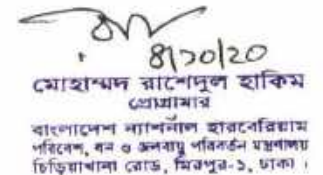 8/10/20
মোহাম্মদ রাশেদুল হাকিম
প্রোগ্রামার
বাংলাদেশ ন্যাশনাল হারবেরিয়াম
পরিবেশ, বন ও জলবায়ু পরিবর্তন মন্ত্রণালয়
চিড়িয়াখানা রোড, মিরপুর-১, ঢাকা।